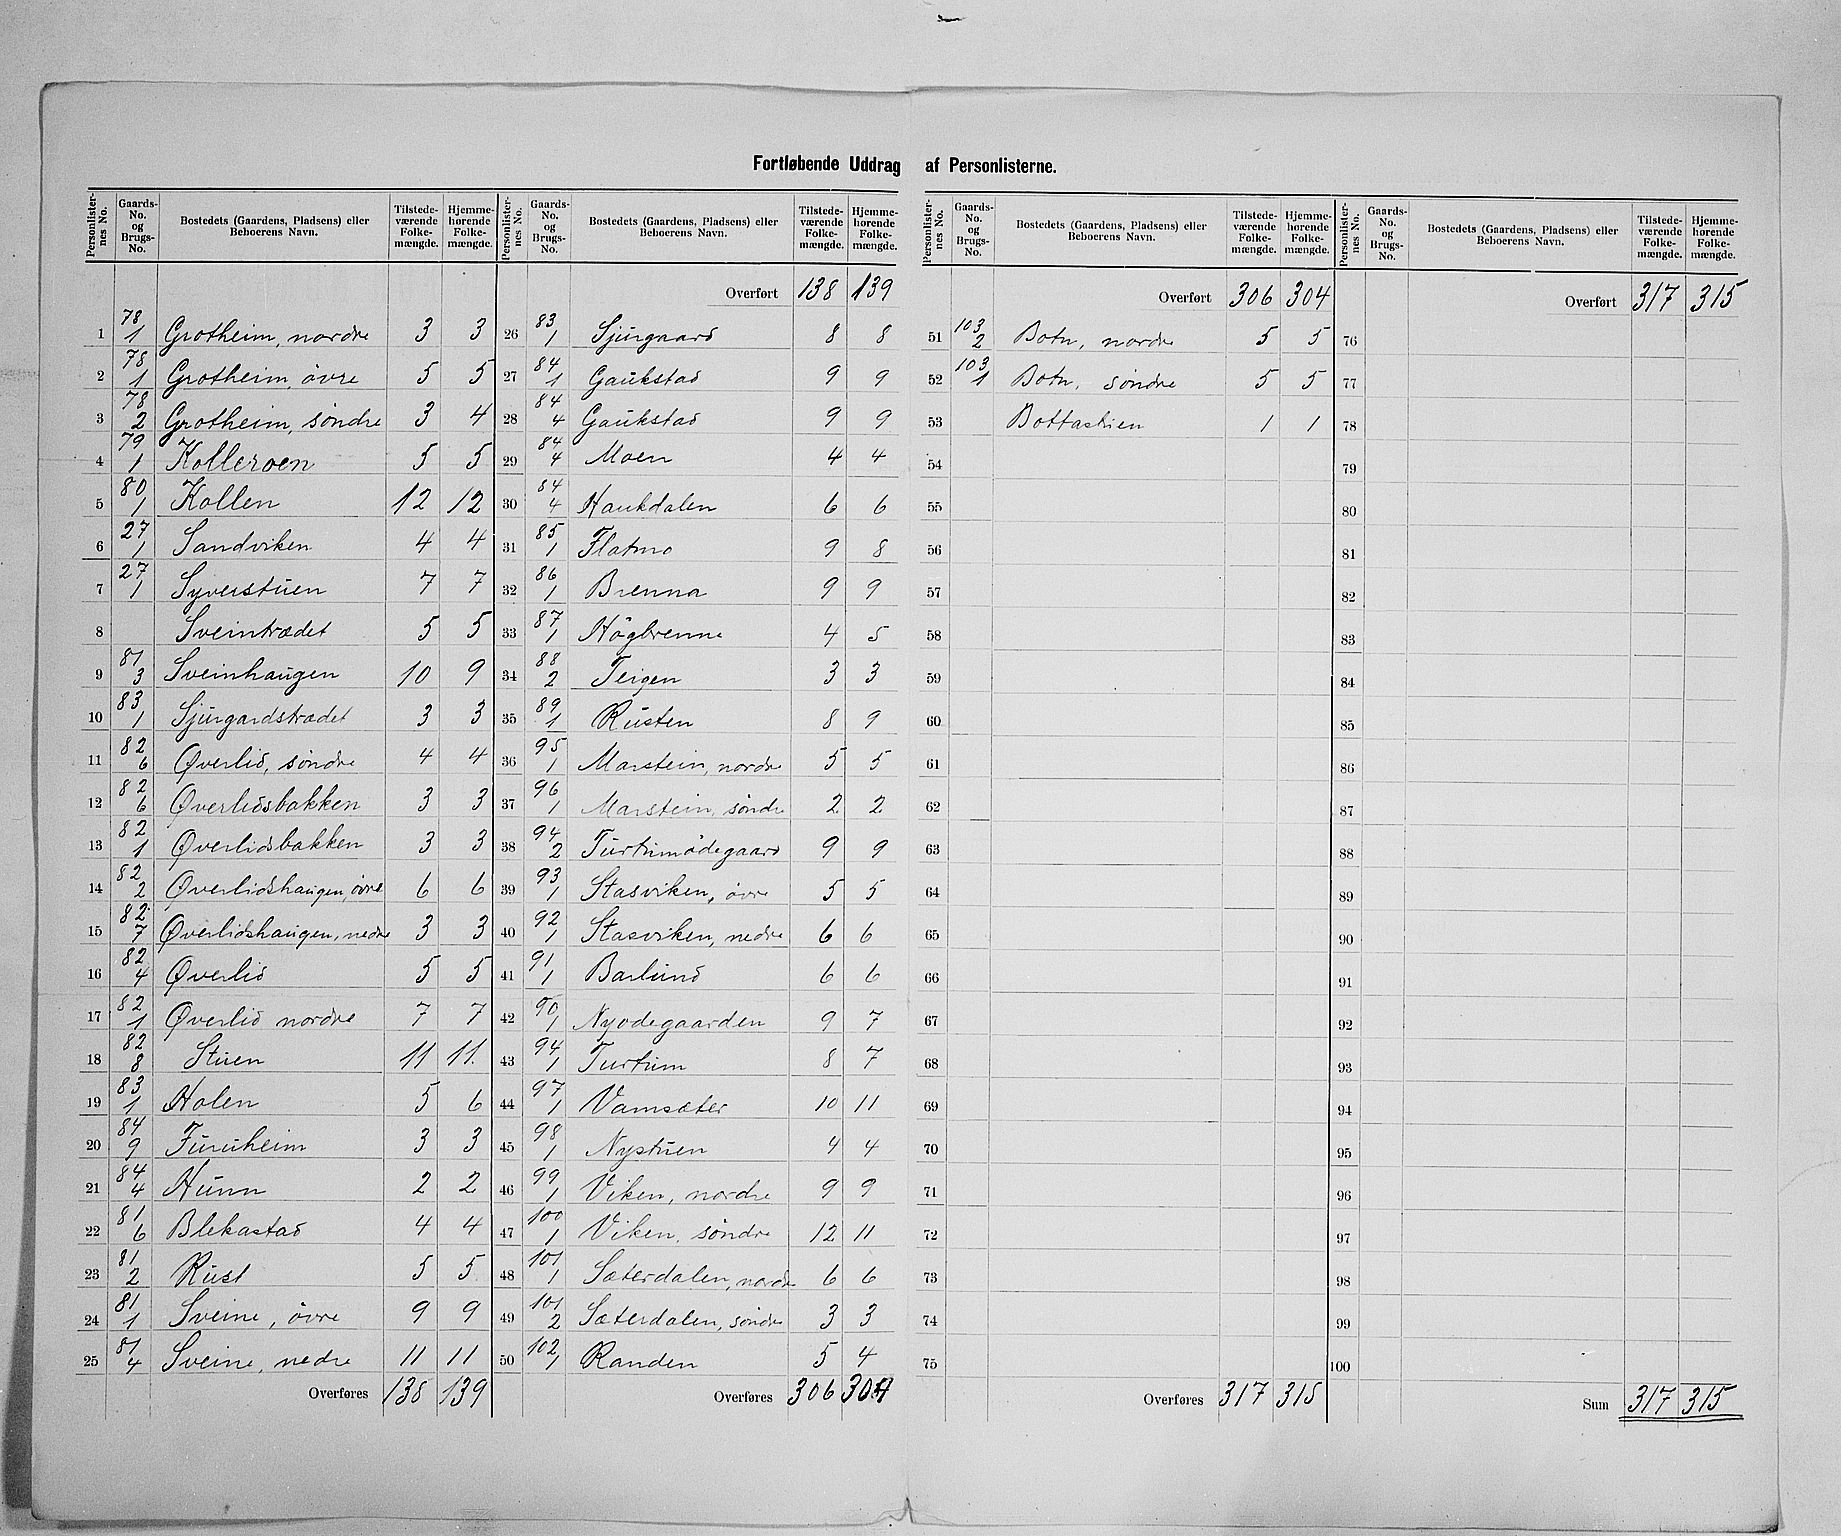 Fortløbende Uddrag af Personlisterne.
Personlister-nes No. | Gaards-No. og Brugs-No. | Bostedets (Gaardens, Pladsens) eller Beboerens Navn. | Tilstede-værende Folke-mængde. | Hjemme-hørende Folke-mængde.
1 78/1 Grotheim, nordre 3 3
2 78/1 Grotheim, övre 5 5
3 78/2 Grotheim, söndre 3 4
4 79/1 Kolleroen 5 5
5 80/1 Kollen 12 12
6 27/1 Sandviken 4 4
7 27/1 Syverstuen 7 7
8 Sveintrædet 5 5
9 81/3 Sveinhaugen 10 9
10 83/1 Sjurgardstrædet 3 3
11 82/6 Øverlid, söndre 4 4
12 82/6 Øverlidsbakken 3 3
13 82/1 Øverlidsbakken 3 3
14 82/2 Øverlidshaugen, övre 6 6
15 82/7 Øverlidshaugen, nedre 3 3
16 82/4 Øverlid 5 5
17 82/1 Øverlid nordre 7 7
18 82/8 Stuen 11 11.
19 83/1 Holen 5 6
20 84/9 Furuheim 3 3
21 84/4 Hunn 2 2
22 81/6 Blekastad 4 4
23 81/2 Rust 5 5
24 81/1 Sveine, övre 9 9
25 81/4 Sveine, nedre 11 11
Overføres 138 139
Personlister-nes No. | Gaards-No. og Brugs-No. | Bostedets (Gaardens, Pladsens) eller Beboerens Navn. | Tilstede-værende Folke-mængde. | Hjemme-hørende Folke-mængde.
Overført 138 139
26 83/1 Sjurgaard 8 8
27 84/1 Gaukstad 9 9
28 84/4 Gaukstad 9 9
29 84/4 Moen 4 4
30 84/4 Haukdalen 6 6
31 85/1 Flatmo 9 8
32 86/1 Brenna 9 9
33 87/1 Högbrenne 4 5
34 88/2 Teigen 3 3
35 89/1 Rusten 8 9
36 95/1 Marstein, nordre 5 5
37 96/1 Marstein, söndre 2 2
38 94/2 Turtumödegaard 9 9
39 93/1 Stasviken, övre 5 5
40 92/1 Stasviken, nedre 6 6
41 91/1 Barlund 6 6
42 90/1 Nyodegaarden 9 7
43 94/1 Turtum 8 7
44 97/1 Vamsæter 10 11
45 98/1 Nystuen 4 4
46 99/1 Viken, nordre 9 9
47 100/1 Viken, söndre 12 11
48 101/1 Sæterdalen, nordre 6 6
49 101/2 Sæterdalen, söndre 3 3
50 102/1 Randen 5 4
Overføres 306 304
Personlister-nes No. | Gaards-No. og Brugs-No. | Bostedets (Gaardens, Pladsens) eller Beboerens Navn. | Tilstede-værende Folke-mængde. | Hjemme-hørende Folke-mængde.
Overført 306 304
51 103/2 Botn, nordre 5 5
52 103/1 Botn, söndre 5 5
53 1 1
54
55
56
57
58
59
60
61
62
63
64
65
66
67
68
69
70
71
72
73
74
75
Overføres 317 315
Personlister-nes No. | Gaards-No. og Brugs-No. | Bostedets (Gaardens, Pladsens) eller Beboerens Navn. | Tilstede-værende Folke-mængde. | Hjemme-hørende Folke-mængde.
Overført 317 315
76
77
78
79
80
81
82
83
84
85
86
87
88
89
90
91
92
93
94
95
96
97
98
99
100
Sum 317 315